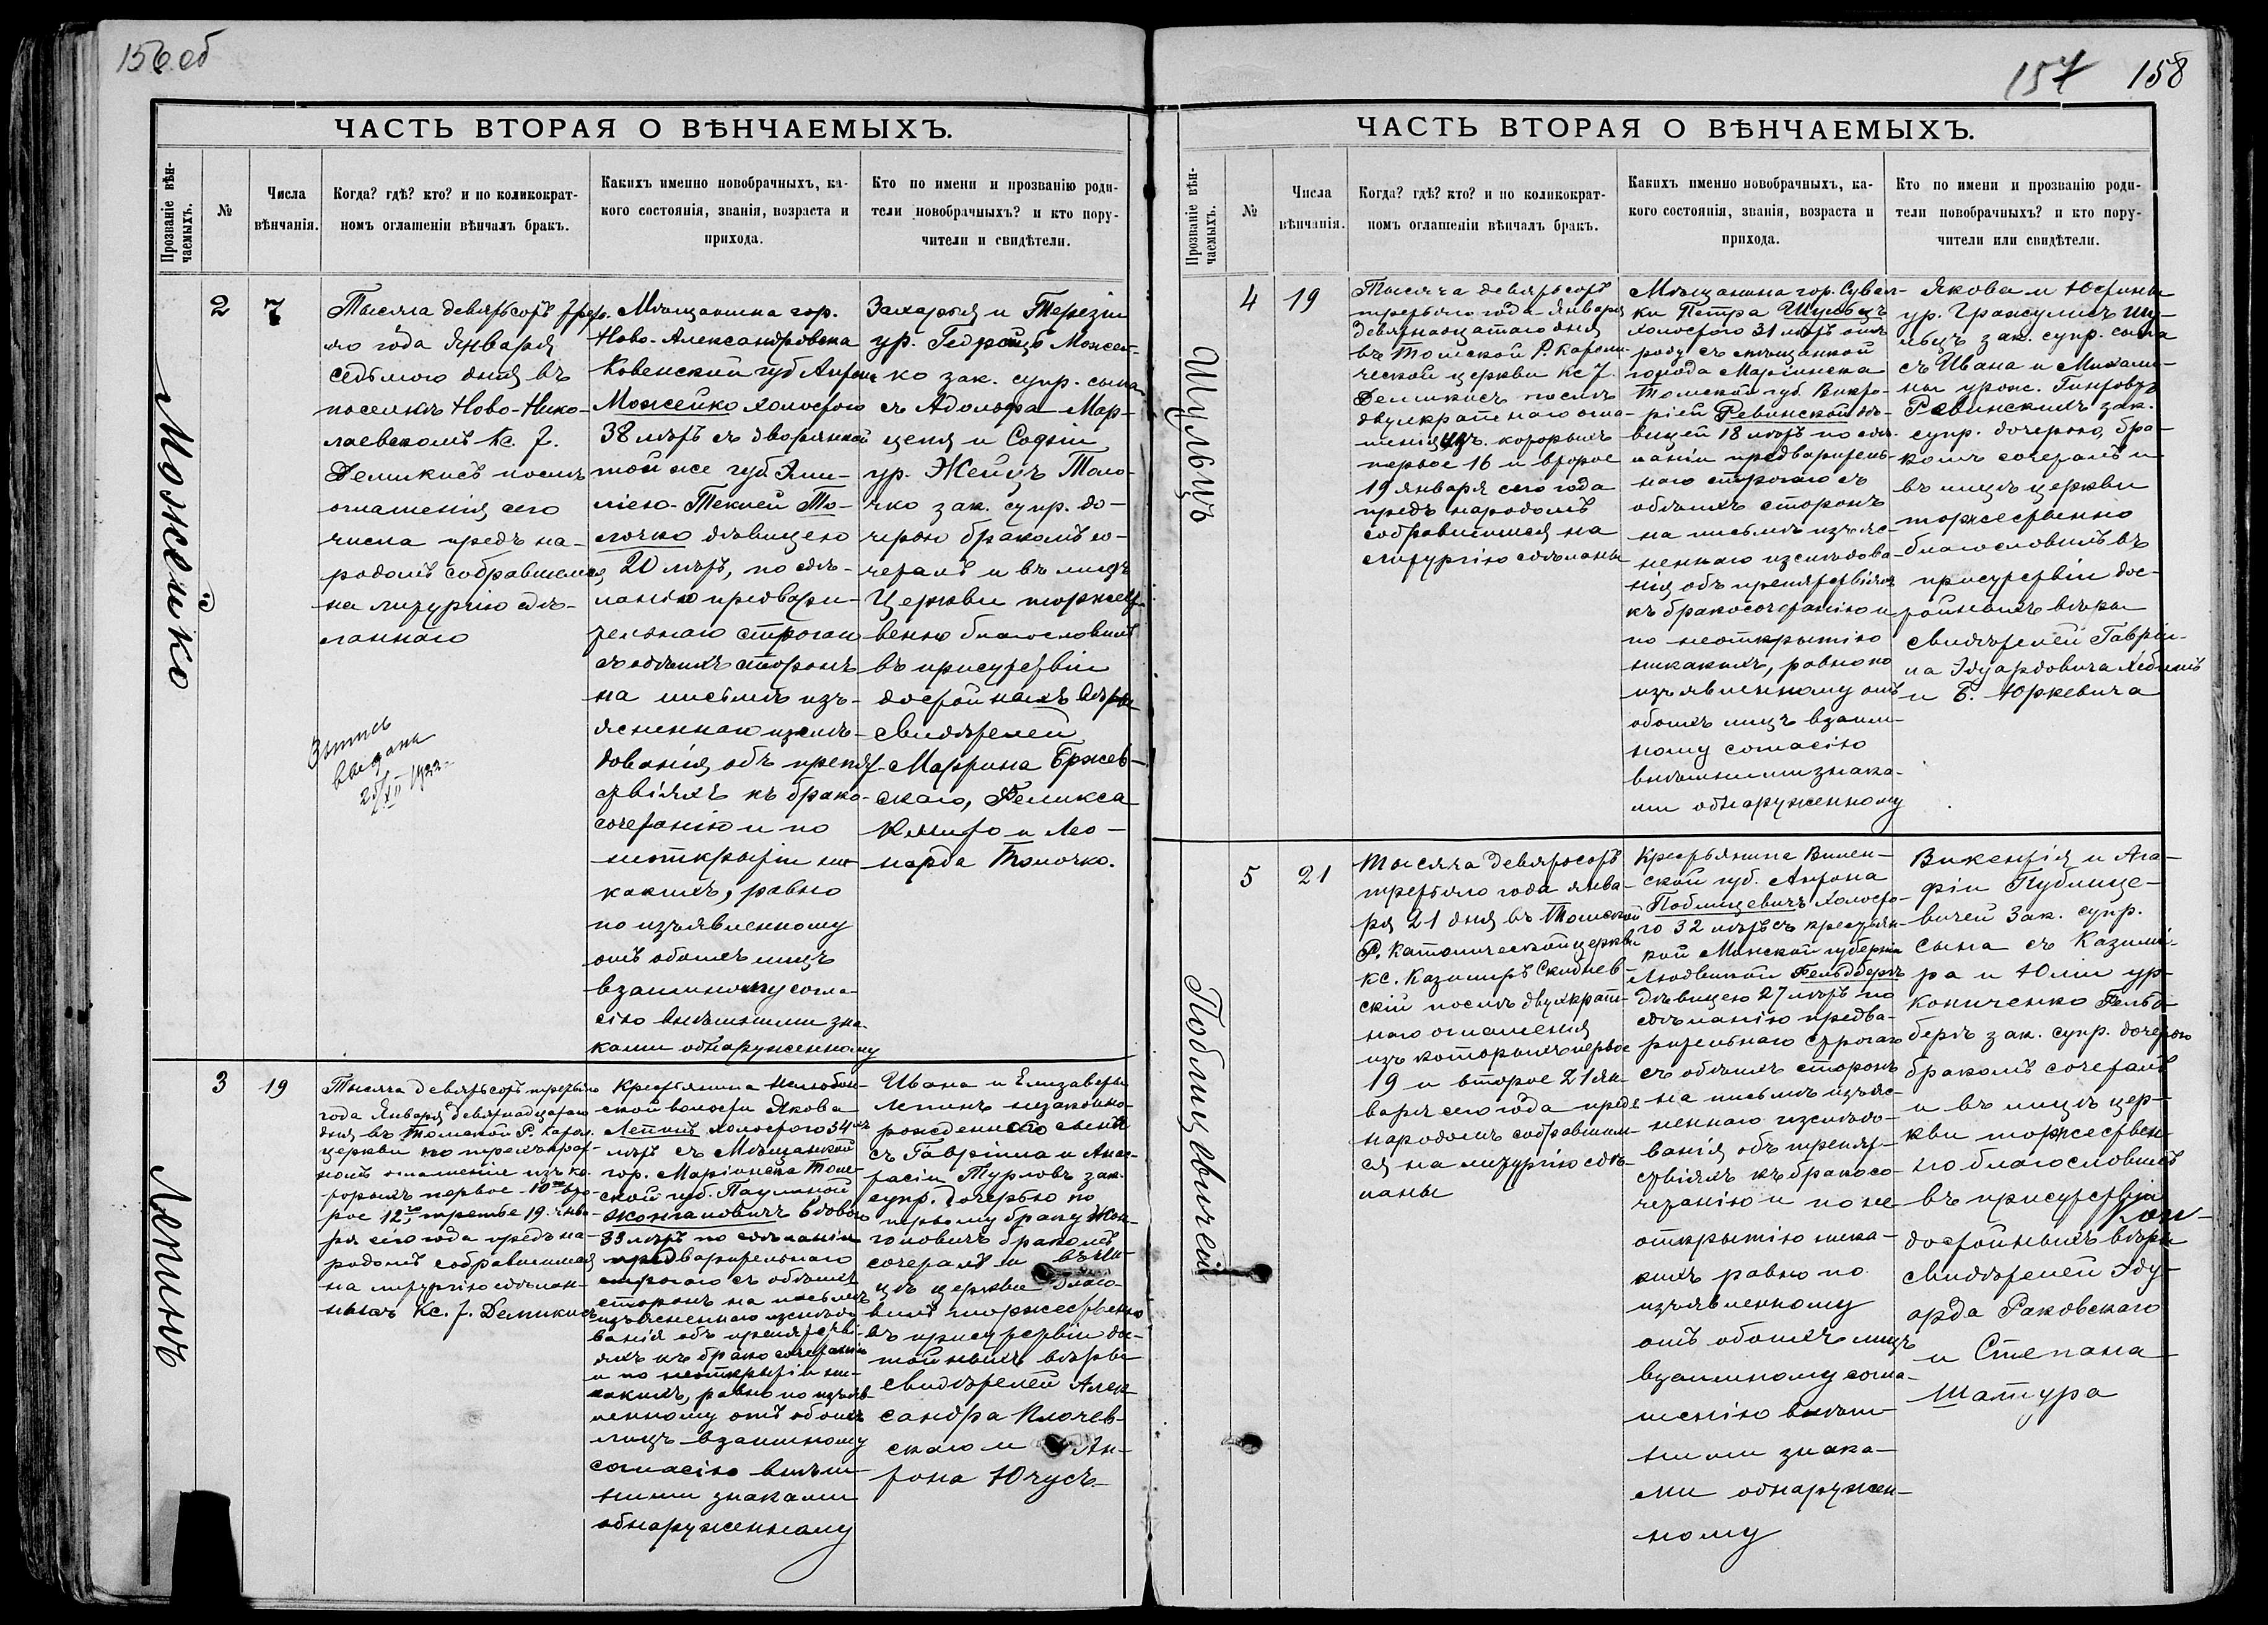 156 об
ЧАСТЬ ВТОРАЯ О ВѢНЧАЕМЫХЪ.
Прозваніе вѣн-
чаемыхъ.
№
Числа
вѣнчанія.
Когда? гдѣ? кто? и по коликократ-
номъ оглашеніи вѣнчалъ бракъ.
Какихъ именно новобрачныхъ, ка-
кого состоянія, званія, возраста и
прихода.
Кто по имени и прозванію роди-
тели новобрачныхъ? и кто пору-
чители и свидѣтели.
Можейко
2
7
Тысяча девятьсотъ трет.
яго года Января
седьмого дня въ
поселкѣ Ново-Нико-
лаевскомъ Кс. J.
Демикисъ послѣ
оглашенія сего
числа предъ на-
родомъ собравшемся
на литургію сдѣ-
ланнаго
Выпись
выдана
25/XII 1922
Мѣщанина гор.
Ново-Александровска
Ковенской губ Антон
Можейко холостого
38 лѣтъ съ дворянкой
той же губ Эми-
ліею-Теклей То-
лочко дѣвицею
20 лѣтъ, по сдѣ-
ланію предвари-
тельнаго строгаго
съ обѣихъ сторонъ
на письмѣ изъ-
ясненнаго изслѣ-
дованія объ препят-
ствіяхъ къ брако-
сочетанію и по
неоткрытіи ни-
какихъ, равно
по изъявленному
отъ обоихъ лицъ
взаимному согла-
сію внѣшними зна-
ками обнаруженному
Захарія и Терезіи
ур. Гедройцъ Можей-
ко зак. супр. сына
съ Адольфа-Мар-
целя и Софіи
ур. Жейцъ Толо-
чко зак. супр. до-
черью бракомъ со-
четалъ и въ лицѣ
Церкви торжест-
венно благословилъ
въ присутствіи
достойныхъ вѣры
свидѣтелей
Мартина Бржев-
скаго, Феликса
и Лео-
нарда Толочко.
Лепинъ
3
19
Тысяча девятьсотъ третьяго
года Января девятнадцатаго
дня въ Томской Р. Катол.
церкви по трехкрат-
номъ оглашеніи изъ ко-
торыхъ первое - 10го вто-
рое 12го, третье 19. янва-
ря сего года предъ на-
родомъ собравшимся
на литургію сдѣлан-
ныхъ Кс. J. Демикисъ
Крестьянина Нелюбин-
ской волости Якова
Лепинъ холостого 34
лѣтъ съ Мѣщанкой
гор. Маріинска Том-
ской губ. Паулиной
Жонгановичъ вдовою
33 лѣтъ по сдѣланіи
предварительнаго
строгаго съ обѣихъ
сторонъ на письмѣ
изъясненнаго изслѣдо-
ванія объ препятстві-
яхъ къ бракосочетанію
и по неоткрытіи ни-
какихъ, равно по изъяв-
ленному отъ обоихъ
лицъ взаимному
согласію внѣш-
ними знаками
обнаруженному
Ивана и Елизаветы
Лепинъ незаконно-
рожденнаго сына
съ Гавріила и Ана-
стасіи Турловъ зак.
супр. дочерью по
первому браку Жон-
гановичъ бракомъ
сочеталъ и въ ли-
цѣ церкви благо-
вилъ торжественно
въ присутствіи до-
стойныхъ вѣры
свидѣтелей Алек-
сандра Ключев-
скаго и Ан-
тона Ючусъ
157 158
ЧАСТЬ ВТОРАЯ О ВѢНЧАЕМЫХЪ.
Прозваніе вѣн-
чаемыхъ.
№
Числа
вѣнчанія.
Когда? гдѣ? кто? и по коликократ-
номъ оглашеніи вѣнчалъ бракъ.
Какихъ именно новобрачныхъ, ка-
кого состоянія, званія, возраста и
прихода.
Кто по имени и прозванію роди-
тели новобрачныхъ? и кто пору-
чители или свидѣтели.
Шульцъ
4
19
Тысяча девятьсотъ
третьяго года Января
девятнадцатаго дня
въ Томской Р. Католи-
ческой церкви кс J.
Демикисъ послѣ
двукратнаго огла-
шенія изъ. которыхъ
первое 16 и второе
19 января сего года
предъ народомъ
собравшимся на
литургію сдѣланы
Мѣщанина гор. Сувал-
ки Петра Шульцъ
холостого 31 лѣтъ отъ
роду съ мѣщанкой
города Маріинска
Томской губ. Викто-
ріей Ревинской дѣ-
вицей 18 лѣтъ по сдѣ-
ланіи предваритель-
наго строгаго съ
обѣихъ сторонъ
на письмѣ изъяс-
неннаго изслѣдова-
нія объ препятствіяхъ
къ бракосочетанію и
по неоткрытію
никакихъ, равно по
изъявленному отъ
обоихъ лицъ взаим-
ному согласію
внѣшними знака-
ми обнаруженному
Якова и Юстины
ур. Гражулисъ Шу-
льцъ зак. супр. сына
съ Ивана и Михали-
ны урожд.
Ревинскихъ зак.
супр. дочерью, бра-
комъ сочеталъ и
въ лицѣ церкви
торжественно
благословилъ въ
присутствіи дос-
тойныхъ вѣры
свидѣтелей Гаврі-
ла Эдуардовича
и Б. Юркевича
Поблицевичей
5
21
Тысяча девятьсотъ
третьяго года янва-
ря 21 дня въ Томской
Р. Католической церкви
кс. Казимиръ Скибнев-
скій послѣ двухкрат-
наго оглашенія
изъ которыхъ первое
19 и второе 21 ян-
варя сего года предъ
народомъ собравшим-
ся на литургію сдѣ-
ланы
Крестьянина Вилен-
ской губ. Антона
Поблицевичъ холосто-
го 32 лѣтъ съ крестьян-
кой Минской губерніи
Людвикой Гельдбергъ
дѣвицею 27 лѣтъ по
сдѣланію предва-
рительнаго строгаго
съ обѣихъ сторонъ
на письмѣ изъяс-
неннаго изслѣдо-
ванія объ препят-
ствіяхъ къ бракосо-
четанію и по не
открытію ника-
кихъ равно по
изъявленному
отъ обоихъ лицъ
взаимному согла-
шенію внѣш-
ними знака-
ми обнаружен-
ному
Викентія и Ага-
фіи Публице-
вичей зак. супр.
сына съ Казимі-
ра и Юліи ур-
Кониченко Гельд-
бергъ зак. супр. дочерью
бракомъ сочеталъ
и въ лицѣ цер-
кви торжествен-
но благословилъ
въ присутствіи
достойныхъ вѣры
свидѣтелей Эду-
арда Раковскаго
и Степана
Шатура